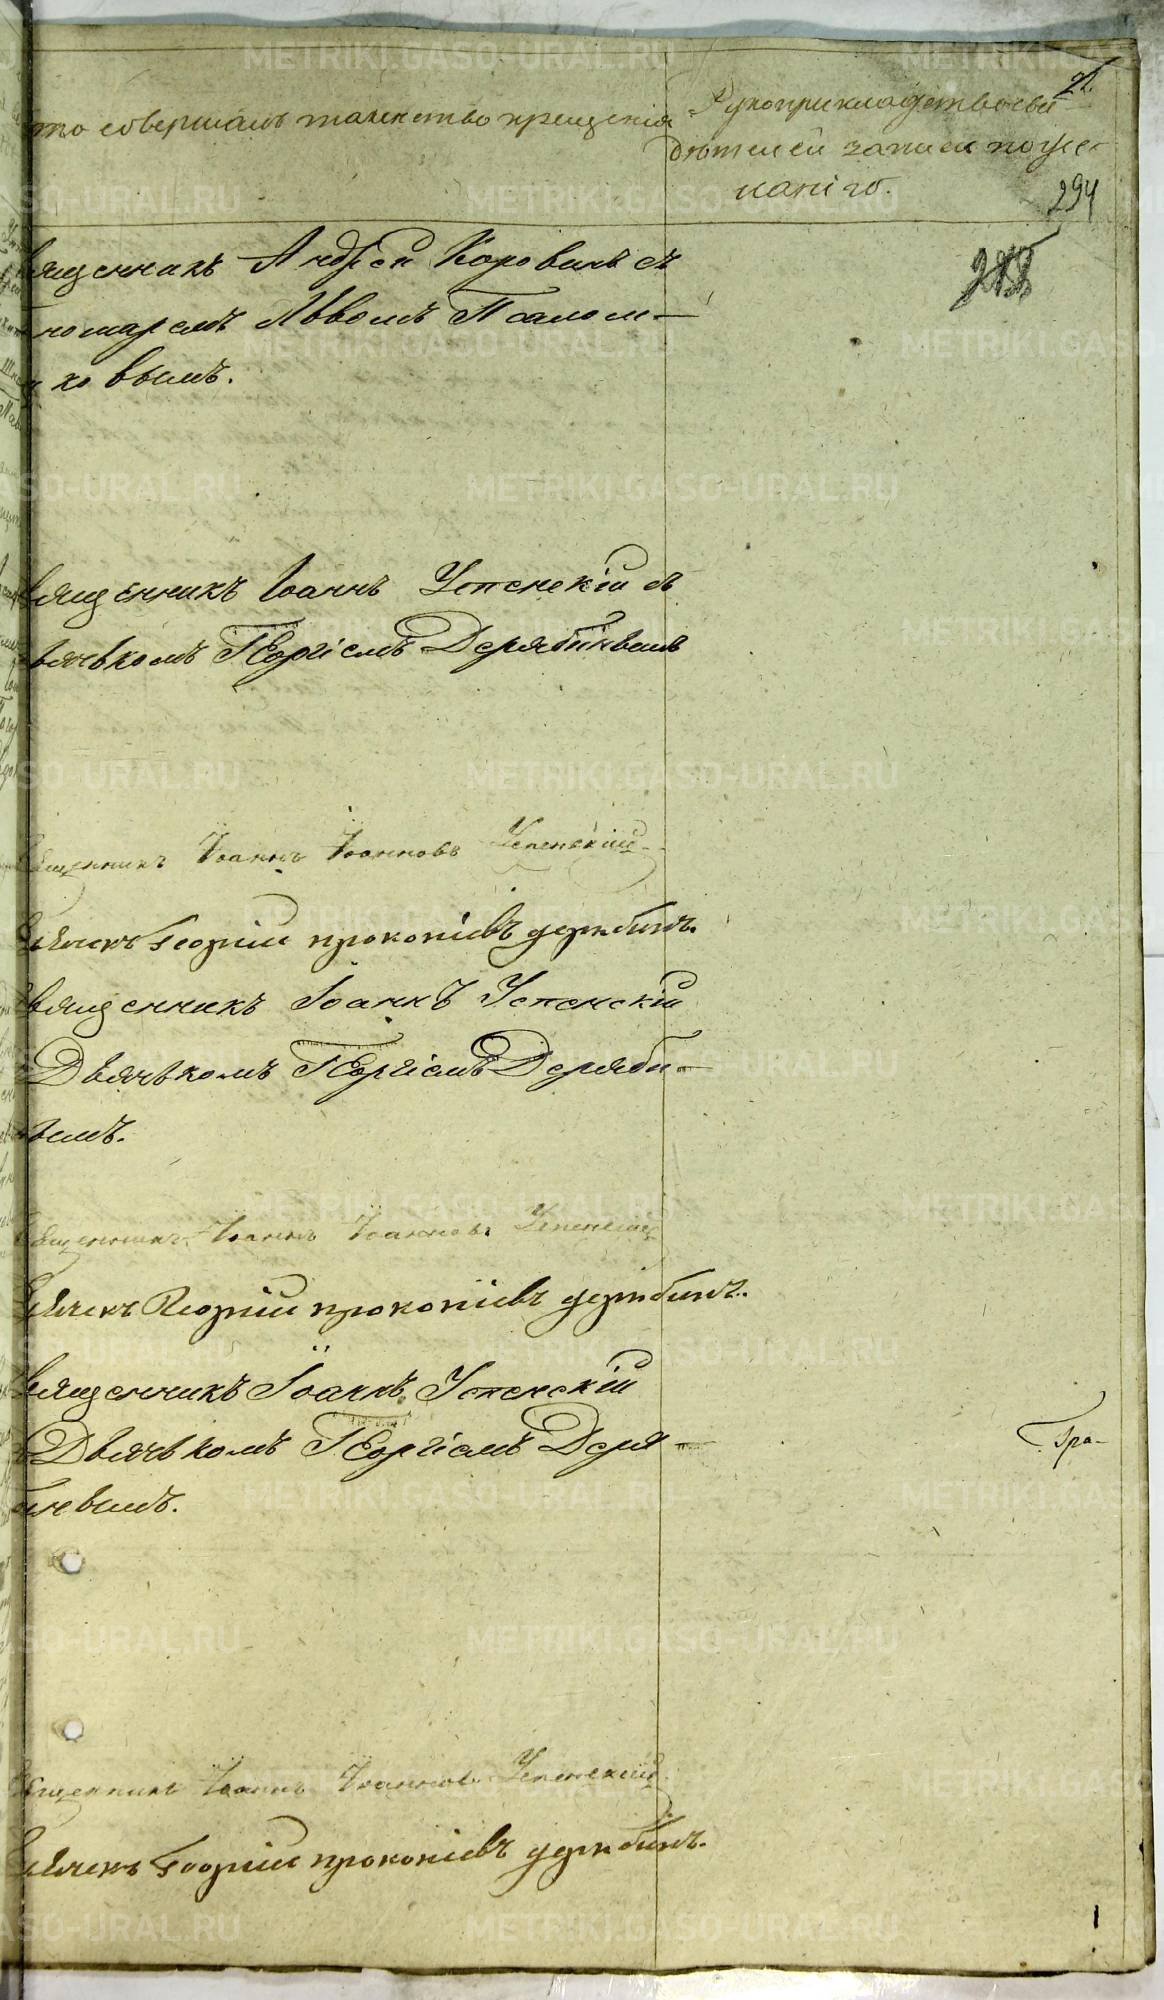 то совершалъ таинство крещенія
Рукоприкладство сви
дѣтелей записи по же-
ланію.
294
вященникъ Андрей Коровинъ съ
номаремъ Львомъ Палом-
ковымъ.
вященникъ Іоаннъ Успенскій съ
ьячкомъ Георгіемъ Дерябинымъ
вященникъ Іоаннъ Іоанновъ Успенскій
ьячекъ Георгій прокопіевъ дерябинъ.
вященникъ Іоаннъ Успенскій
Дьячкомъ Георгіемъ Деряби-
нымъ.
вященникъ Іоаннъ Іоанновъ Успенскій
ьячекъ Георгій прокопіевъ дерябинъ.
вященникъ Іоаннъ Успенскій
Дьячкомъ Георгіемъ Деря-
Гра-
вященникъ Іоаннъ Іоанновъ Успенскій
ьячекъ Георгій прокопіевъ дерябинъ.
METRIKI.GASO-URAL.RU